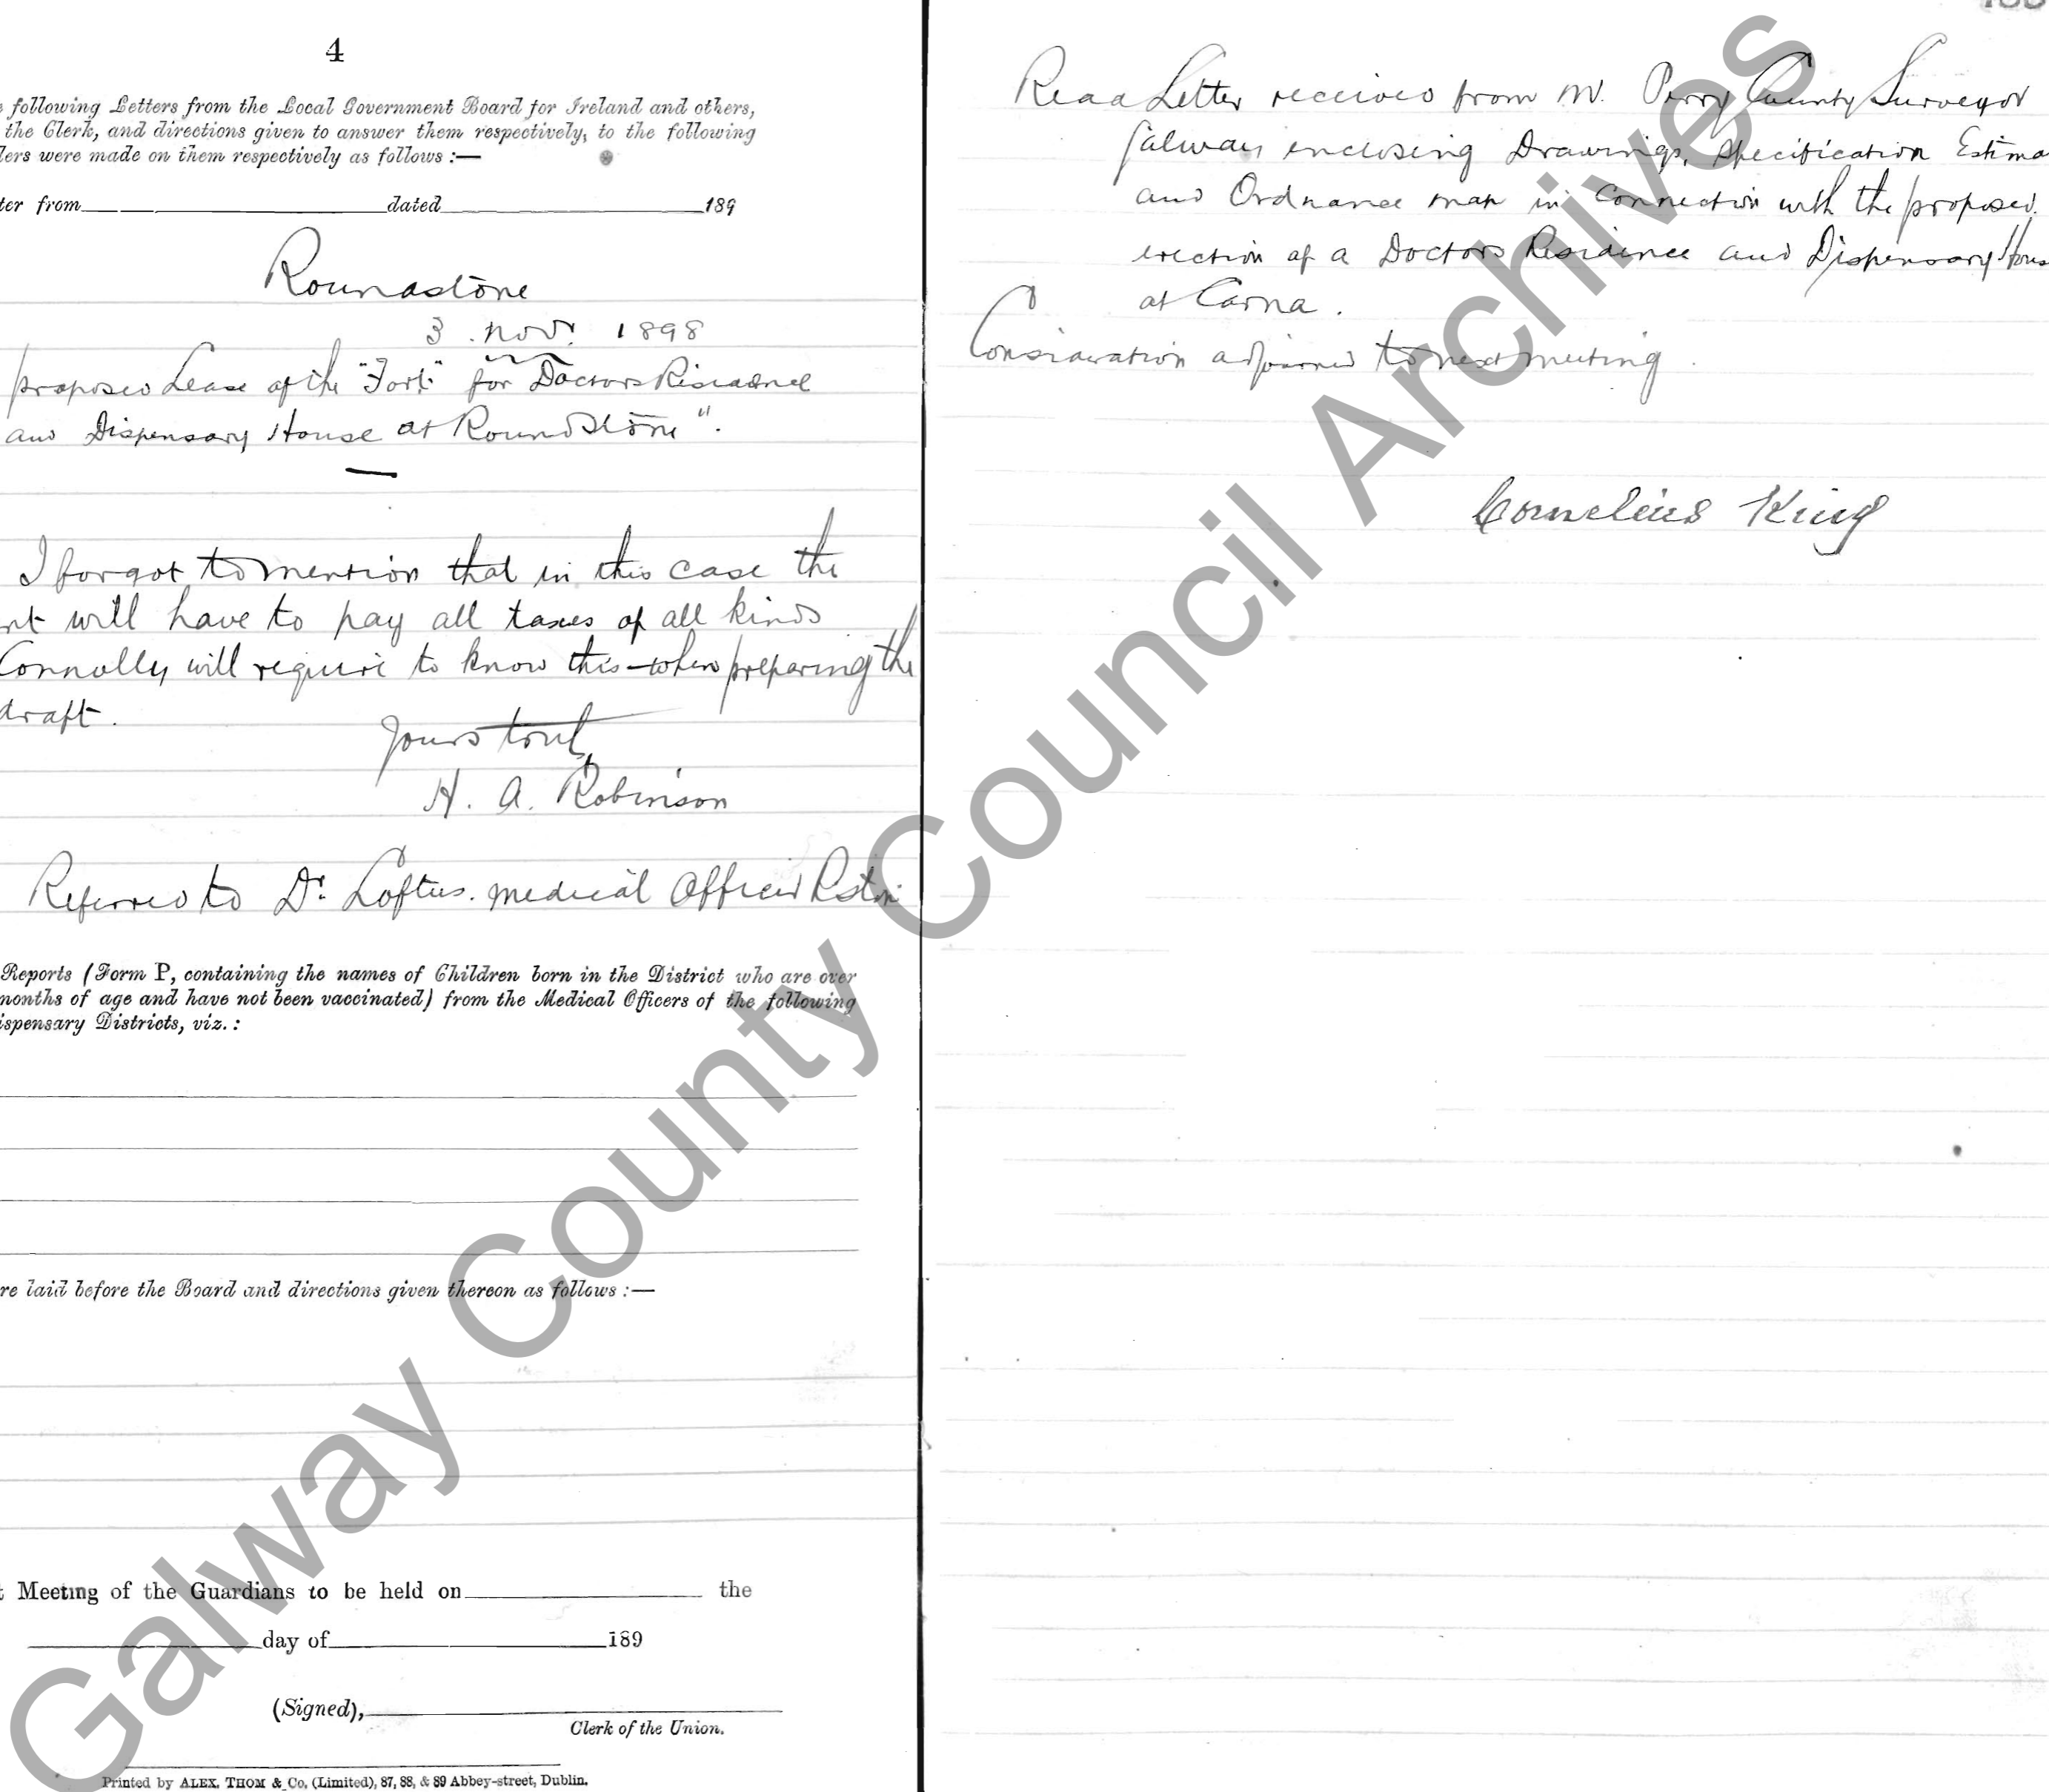 4
following Letters from the Local Government Board for Ireland and others,
the Clerk, and directions given to answer them respectively, to the following
ders were made on them respectively as follows :—
ter from dated 189
Roundstone
3. Nov. 1898
proposed Lease of the "Fort" for Doctors Residence
and Dispensary House at Roundstone".
I forgot to mention that in this case the
nt will have to pay all taxes of all kinds
Connolly will require to know this when preparing the
draft.
Yours truly
H. A. Robinson
Referred to Dr Loftus. medical Officer
Reports (Form P, containing the names of Children born in the District who are over
months of age and have not been vaccinated) from the Medical Officers of the following
ispensary Districts, viz. :
re laid before the Board and directions given thereon as follows :—
t Meeting of the Guardians to be held on the
day of 189
(Signed),
Clerk of the Union.
Printed by ALEX. THOM & Co. (Limited), 87, 88, & 89 Abbey-street, Dublin.
Read Letter received from Mr. Perry County Surveyor
Galway enclosing Drawings, Specification Estima
and Ordnance map in connection with the proposed
erection of a Doctors Residence and Dispensary Hous
at Carna.
Consideration adjourned to next meeting.
Cornelius King
Galway County Council Archives